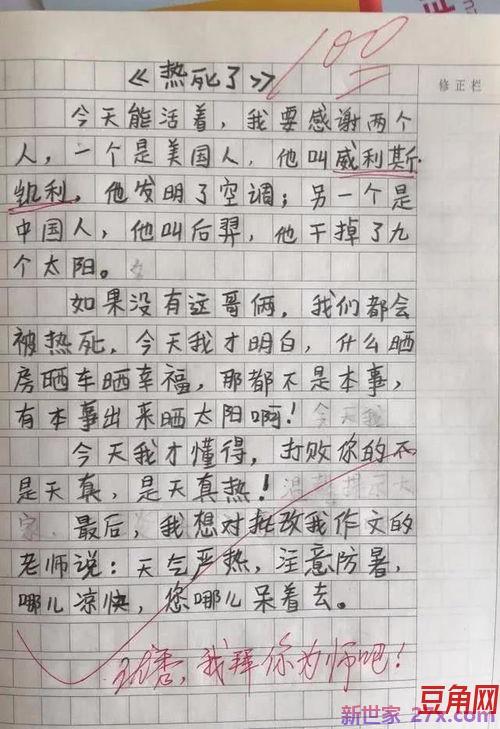 100
修正栏
《热死了》
今天能活着，我要感谢两个
人，一个是美国人，他叫威利斯·
凯利，他发明了空调；另一个是
中国人，他叫后羿，他干掉了九
个太阳。
如果没有这哥俩，我们都会
被热死，今天我才明白，什么晒
房晒车晒幸福，那都不是本事，
有本事出来晒太阳啊！
今天我才懂得，打败你的不
是天真，是天真热！
最后，我想对批改我作文的
老师说：天气严热，注意防暑，
哪儿凉快，您哪儿呆着去。
我拜你为师吧！
豆角网
新世家 27x.com